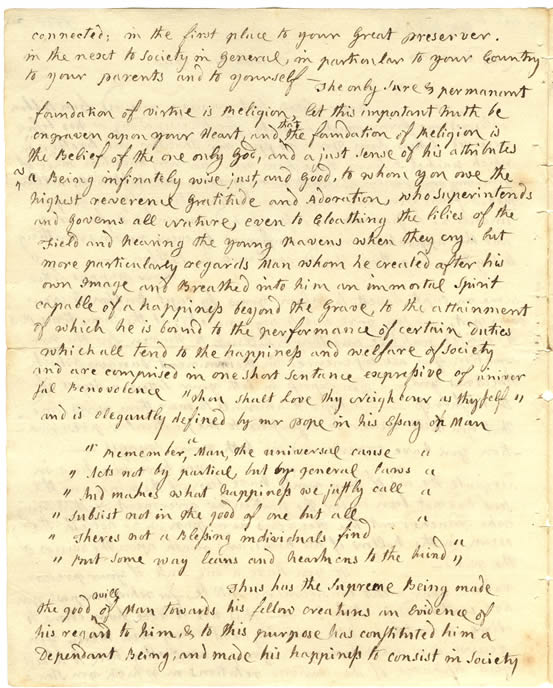 connected; in the first place to your Great preserver.
in the next to Society in General, in particular to your Country
to your parents and to yourself
The only Sure & permanant
foundation of virtue is Religion, Let this important truth be
engraven upon your Heart, and that the foundation of Religion is
the Belief of the one only God, and a just sense of his attributes
a Being infinately wise, just, and Good, to whom you owe the
highest reverence Gratitude and Adoration, who Superintends
and Governs all Nature, even to Cloathing the lilies of the
Field and hearing the young Ravens when they cry. but
more particularly regards Man whom he created after his
own Image and Breathed into him an immortal Spirit
capable of a happiness beyond the Grave, to the attainment
of which he is bound to the performance of certain duties
which all tend to the happiness and welfare of Society
and are comprised in one short sentance expressive of univer
sal Benevolence "Thou shalt Love thy neighbour as thyself"
and is elegantly defined by mr pope in his Essay on Man
"Remember, Man, the universal cause "
" Acts not by partial but by general laws "
" And makes what happiness we justly call "
" Subsist not in the good of one but all "
" Theres not a Blessing individuals find "
" But some way leans and hearkens to the kind "
Thus has the Supreme Being made
the good will of Man towards his fellow creatures an Evidence of
his regard to him, & to this purpose has constituted him a
Dependant Being, and made his happiness to consist in Society